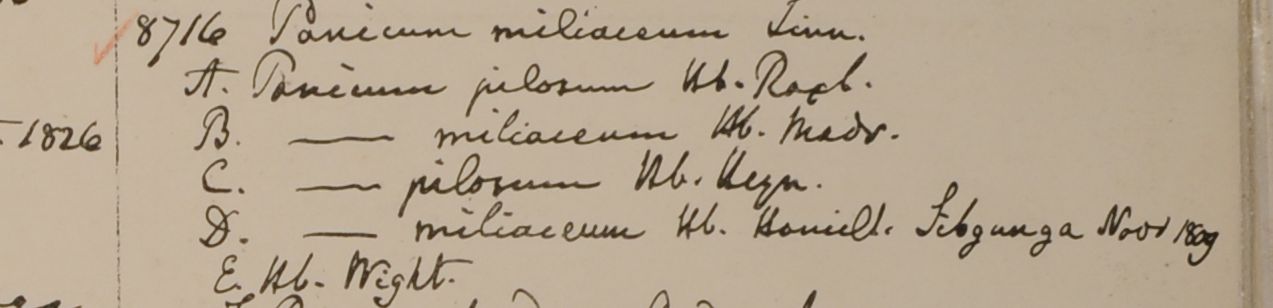 8716 Panicum miliaceum Linn.
A. Panicum pilosum Hb. Roxb.
- 1826 B. — miliaceum Hb. Madr.
C. — pilosum Hb. Heyn.
D. — miliaceum Hb. Hamilt. Sibgunga Novr 1809
E. Hb. Wight.